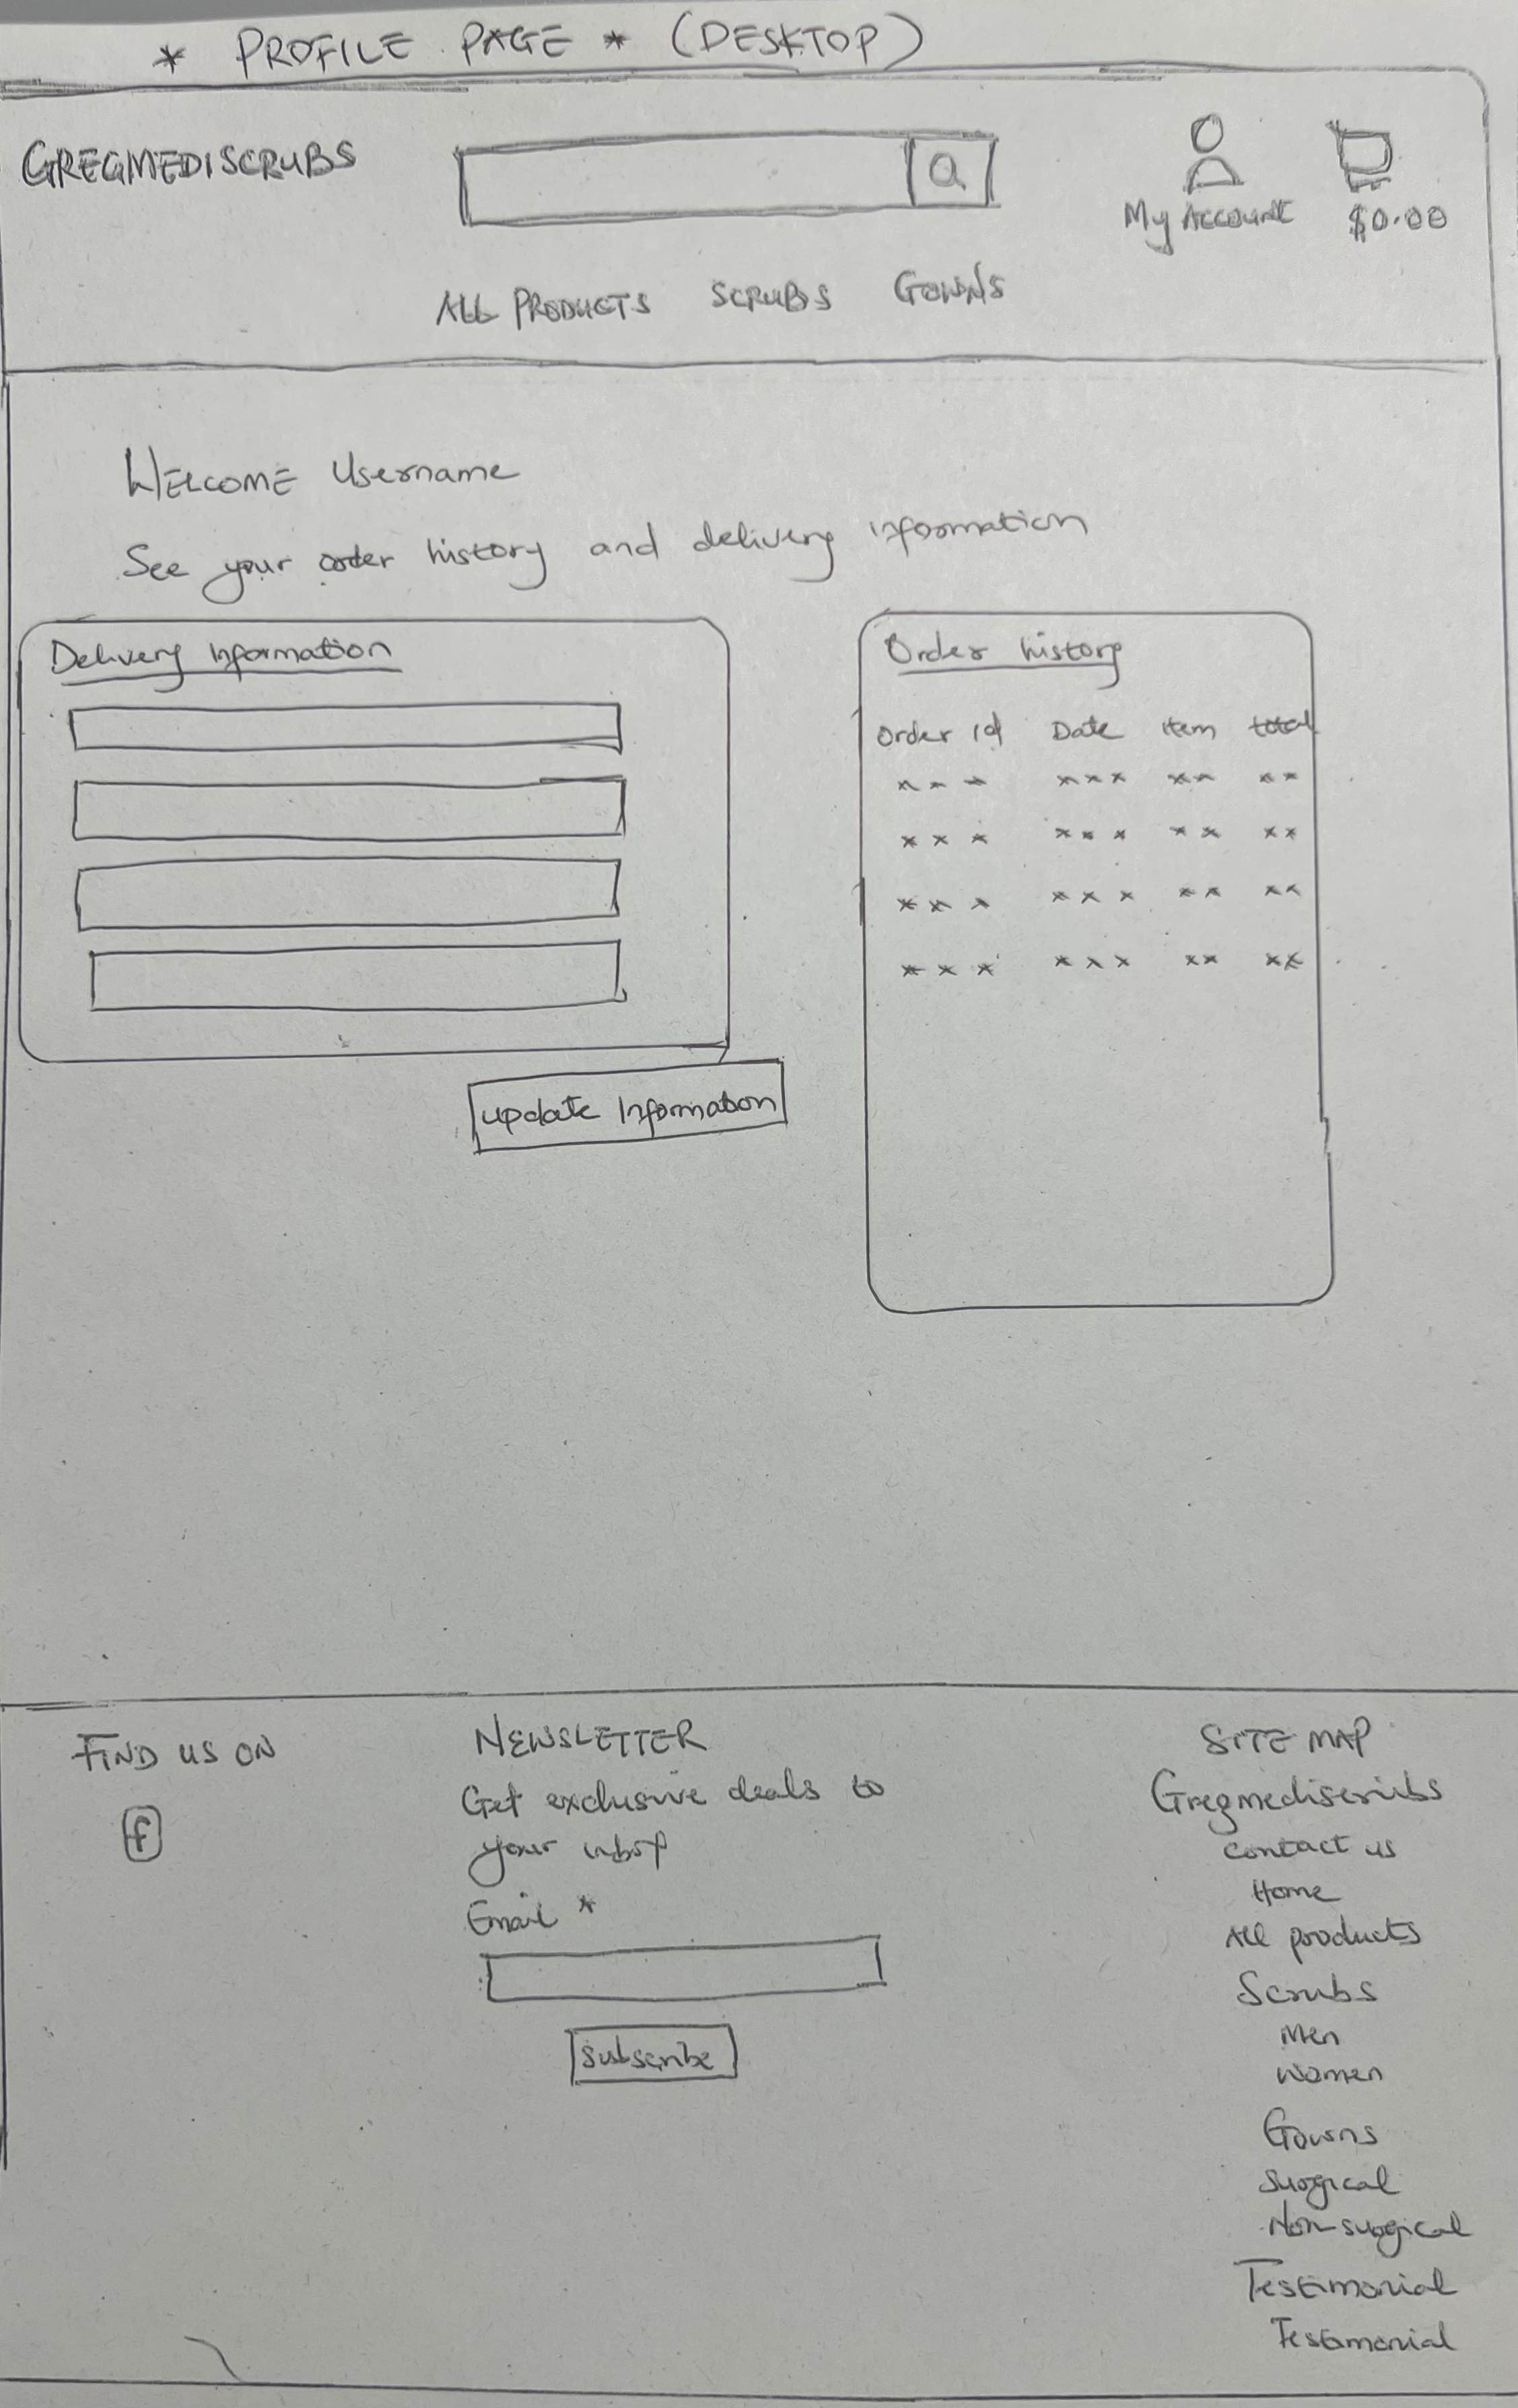 * PROFILE PAGE * (DESKTOP)
GREGMEDISCRUBS
My Account $0.00
ALL PRODUCTS SCRUBS GOWNS
WELCOME Username
See your order history and delivery information
Delivery Information
Order history
Order Id Date Item total
update Information
FIND US ON
f
NEWSLETTER
Get exclusive deals to
your
Email *
Subscribe
SITE MAP
Gregmediscrubs
Contact us
Home
All products
Scrubs
Men
Women
Gowns
Surgical
Non-surgical
Testimonial
Testimonial